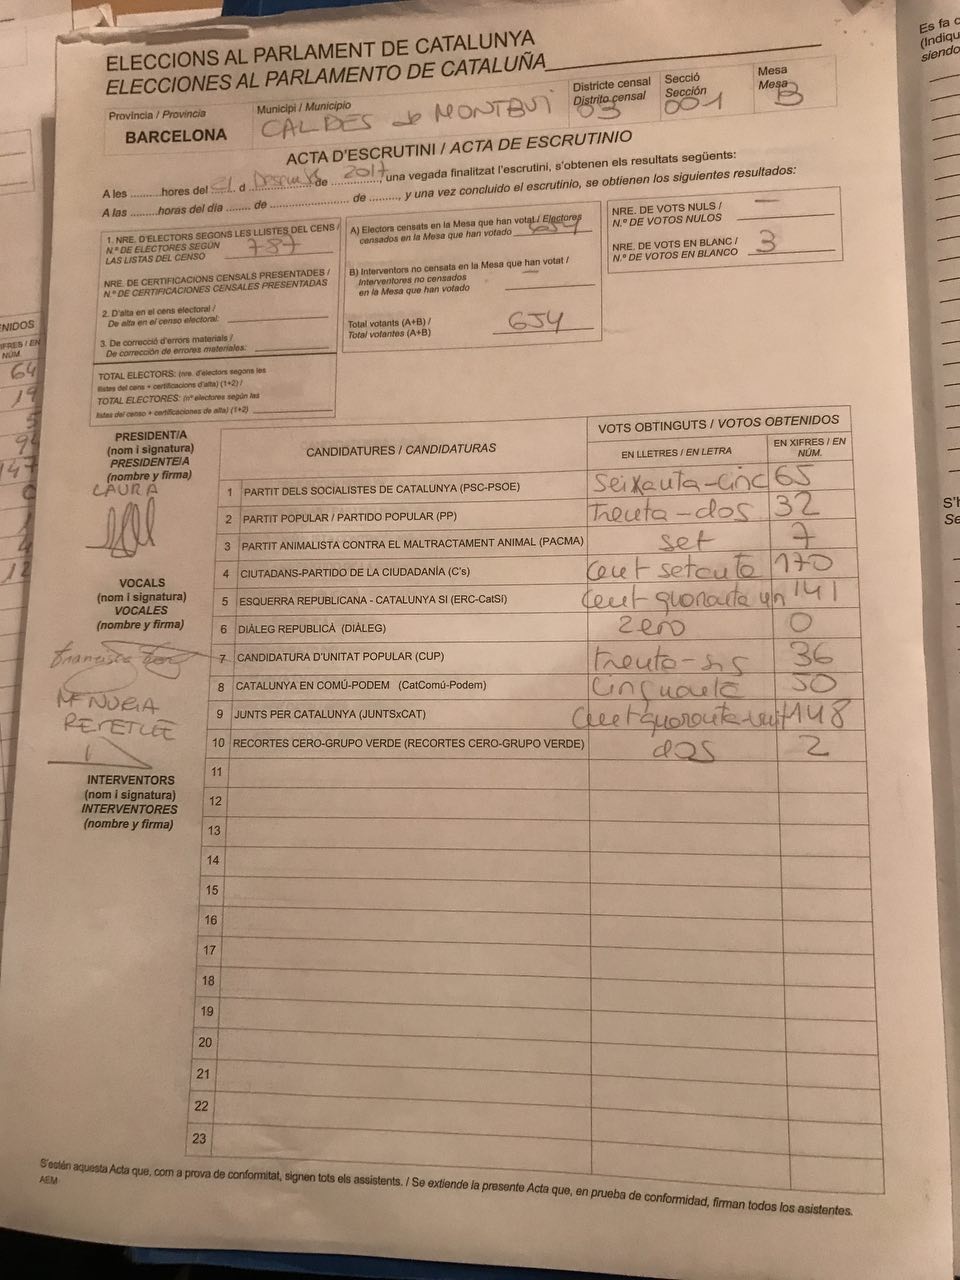 ELECCIONS AL PARLAMENT DE CATALUNYA
ELECCIONES AL PARLAMENTO DE CATALUÑA
Província / Provincia
BARCELONA
Municipi / Municipio
CALDES de MONTBUI
Districte censal
Distrito censal
03
Secció
Sección
001
Mesa
Mesa
B
ACTA D'ESCRUTINI / ACTA DE ESCRUTINIO
A les .........hores del 21 d Desembre de 2017, una vegada finalitzat l'escrutini, s'obtenen els resultats següents:
A las .........horas del día ........ de ......................... de ........., y una vez concluido el escrutinio, se obtienen los siguientes resultados:
1. NRE. D'ELECTORS SEGONS LES LLISTES DEL CENS /
N.º DE ELECTORES SEGÚN
LAS LISTAS DEL CENSO 787
NRE. DE CERTIFICACIONS CENSALS PRESENTADES /
N.º DE CERTIFICACIONES CENSALES PRESENTADAS
2. D'alta en el cens electoral /
De alta en el censo electoral:
3. De correcció d'errors materials /
De corrección de errores materiales:
TOTAL ELECTORS: (nre. d'electors segons les
llistes del cens + certificacions d'alta) (1+2) /
TOTAL ELECTORES: (nº electores según las
listas del censo + certificaciones de alta) (1+2)
A) Electors censats en la Mesa que han votat / Electores
censados en la Mesa que han votado 654
B) Interventors no censats en la Mesa que han votat /
Interventores no censados
en la Mesa que han votado —
Total votants (A+B) /
Total votantes (A+B) 654
NRE. DE VOTS NULS /
N.º DE VOTOS NULOS —
NRE. DE VOTS EN BLANC /
N.º DE VOTOS EN BLANCO 3
PRESIDENT/A
(nom i signatura)
PRESIDENTE/A
(nombre y firma)
LAURA
VOCALS
(nom i signatura)
VOCALES
(nombre y firma)
Mª NURIA
INTERVENTORS
(nom i signatura)
INTERVENTORES
(nombre y firma)
CANDIDATURES / CANDIDATURAS
VOTS OBTINGUTS / VOTOS OBTENIDOS
EN LLETRES / EN LETRA
EN XIFRES / EN NÚM.
1 PARTIT DELS SOCIALISTES DE CATALUNYA (PSC-PSOE) seixanta-cinc 65
2 PARTIT POPULAR / PARTIDO POPULAR (PP) trenta-dos 32
3 PARTIT ANIMALISTA CONTRA EL MALTRACTAMENT ANIMAL (PACMA) set 7
4 CIUTADANS-PARTIDO DE LA CIUDADANÍA (C's) cent setanta 170
5 ESQUERRA REPUBLICANA - CATALUNYA SI (ERC-CatSí) cent quaranta un 141
6 DIÀLEG REPUBLICÀ (DIÀLEG) zero 0
7 CANDIDATURA D'UNITAT POPULAR (CUP) trenta-sis 36
8 CATALUNYA EN COMÚ-PODEM (CatComú-Podem) cinquanta 50
9 JUNTS PER CATALUNYA (JUNTSxCAT) cent quaranta-vuit 148
10 RECORTES CERO-GRUPO VERDE (RECORTES CERO-GRUPO VERDE) dos 2
11
12
13
14
15
16
17
18
19
20
21
22
23
S'estén aquesta Acta que, com a prova de conformitat, signen tots els assistents. / Se extiende la presente Acta que, en prueba de conformidad, firman todos los asistentes.
AEM